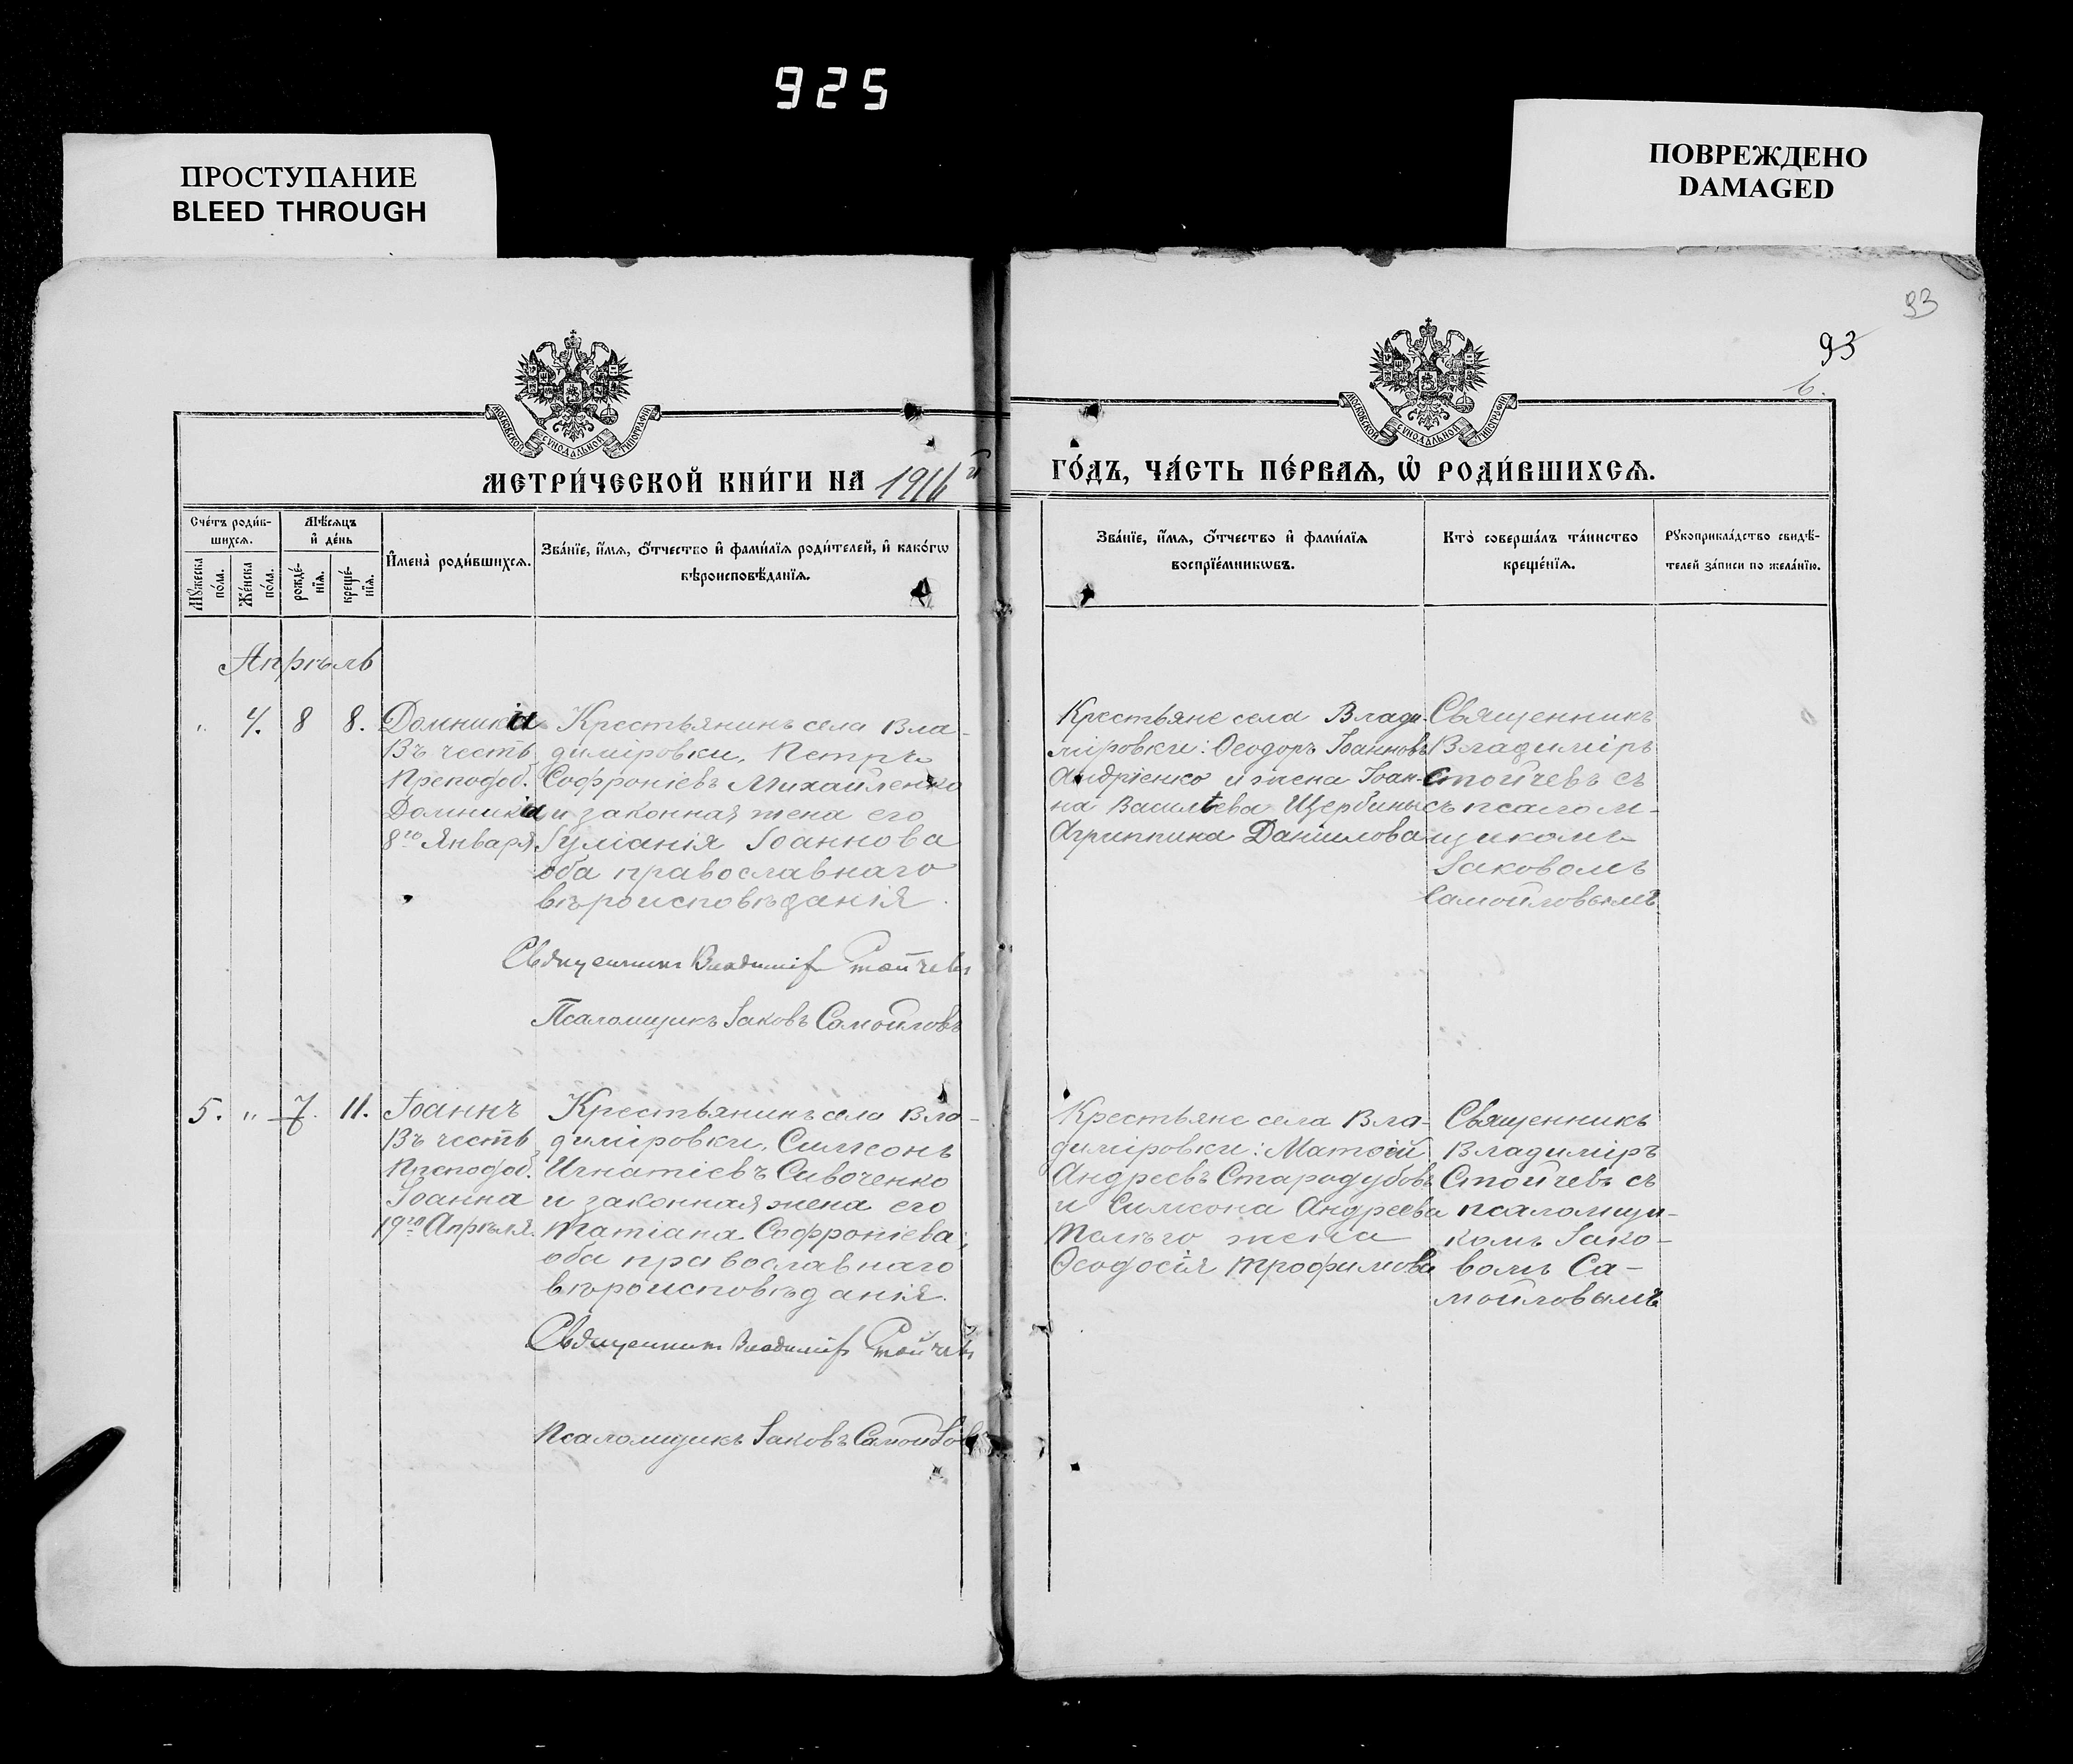 925
ПРОСТУПАНИЕ
BLEED THROUGH
ПОВРЕЖДЕНО
DAMAGED
93
93
МОСКОВСКОЙ СѴНОДАЛЬНОЙ ТИПОГРАФІИ
МОСКОВСКОЙ СѴНОДАЛЬНОЙ ТИПОГРАФІИ
МЕТРИ́ЧЕСКОЙ КНИ́ГИ НА 1916й
ГО́ДЪ, ЧА́СТЬ ПЕ́РВАѦ, Ѽ РОДИ́ВШИХСѦ.
Сче́тъ роди́в-
шихсѧ.
Мꙋ́жеска по́ла.
Же́нска по́ла.
Мѣ́сѧцъ
и҆ де́нь
рожде́-
нїѧ.
креще́-
нїѧ.
И҆мена̀ роди́вшихсѧ.
Зва́нїе, и҆́мѧ, ѻ҆́тчество и҆ фами́лїѧ роди́телей, и҆ како́гѡ
вѣроисповѣ́данїѧ.
Зва́нїе, и҆́мѧ, ѻ҆́тчество и҆ фами́лїѧ
воспрїе́мникѡвъ.
Кто̀ соверша́лъ та́инство
креще́нїѧ.
Рꙋкоприкла́дство свидѣ́-
телей за́писи по жела́нїю.
Апрѣль
" 4. 8 8.
Домникіа
Въ честь
Преподоб.
Домникіи
8го Января
Крестьянинъ села Вла-
диміровки, Петръ
Софроніевъ Михайленко
и законная жена его
Іуліанія Іоаннова
оба православнаго
вѣроисповѣданія.
Священникъ Владиміръ Стойчевъ
Псаломщикъ Іаковъ Самойловъ
Крестьяне села Влади-
міровки: Ѳеодоръ Іоанновъ
Андріенко и жена Іоан-
на Васильева Щербины
Агриппина Даніилова
Священникъ
Владиміръ
Стойчевъ съ
съ псалом-
щикомъ
Іаковомъ
Самойловымъ.
5. " 7. 11.
Іоаннъ
Въ честь
Преподоб.
Іоанна
19го Апрѣля.
Крестьянинъ села Вла-
диміровки, Симеонъ
Игнатіевъ Сивоченко
и законная жена его
Татіана Софроніева;
оба православнаго
вѣроисповѣданія.
Священникъ Владиміръ Стойчевъ
Псаломщикъ Іаковъ Самойловъ
Крестьяне села Вла-
диміровки: Матѳій
Андреевъ Стародубовъ
и Симеона Андреева
жена
Ѳеодосія Трофимова
Священникъ
Владиміръ
Стойчевъ съ
псаломщи-
комъ Іако-
вомъ Са-
мойловымъ